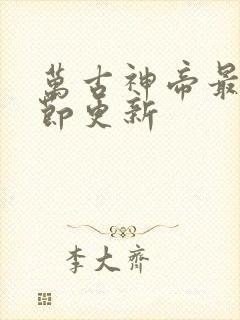 萬古神帝最
節更新
李大齊